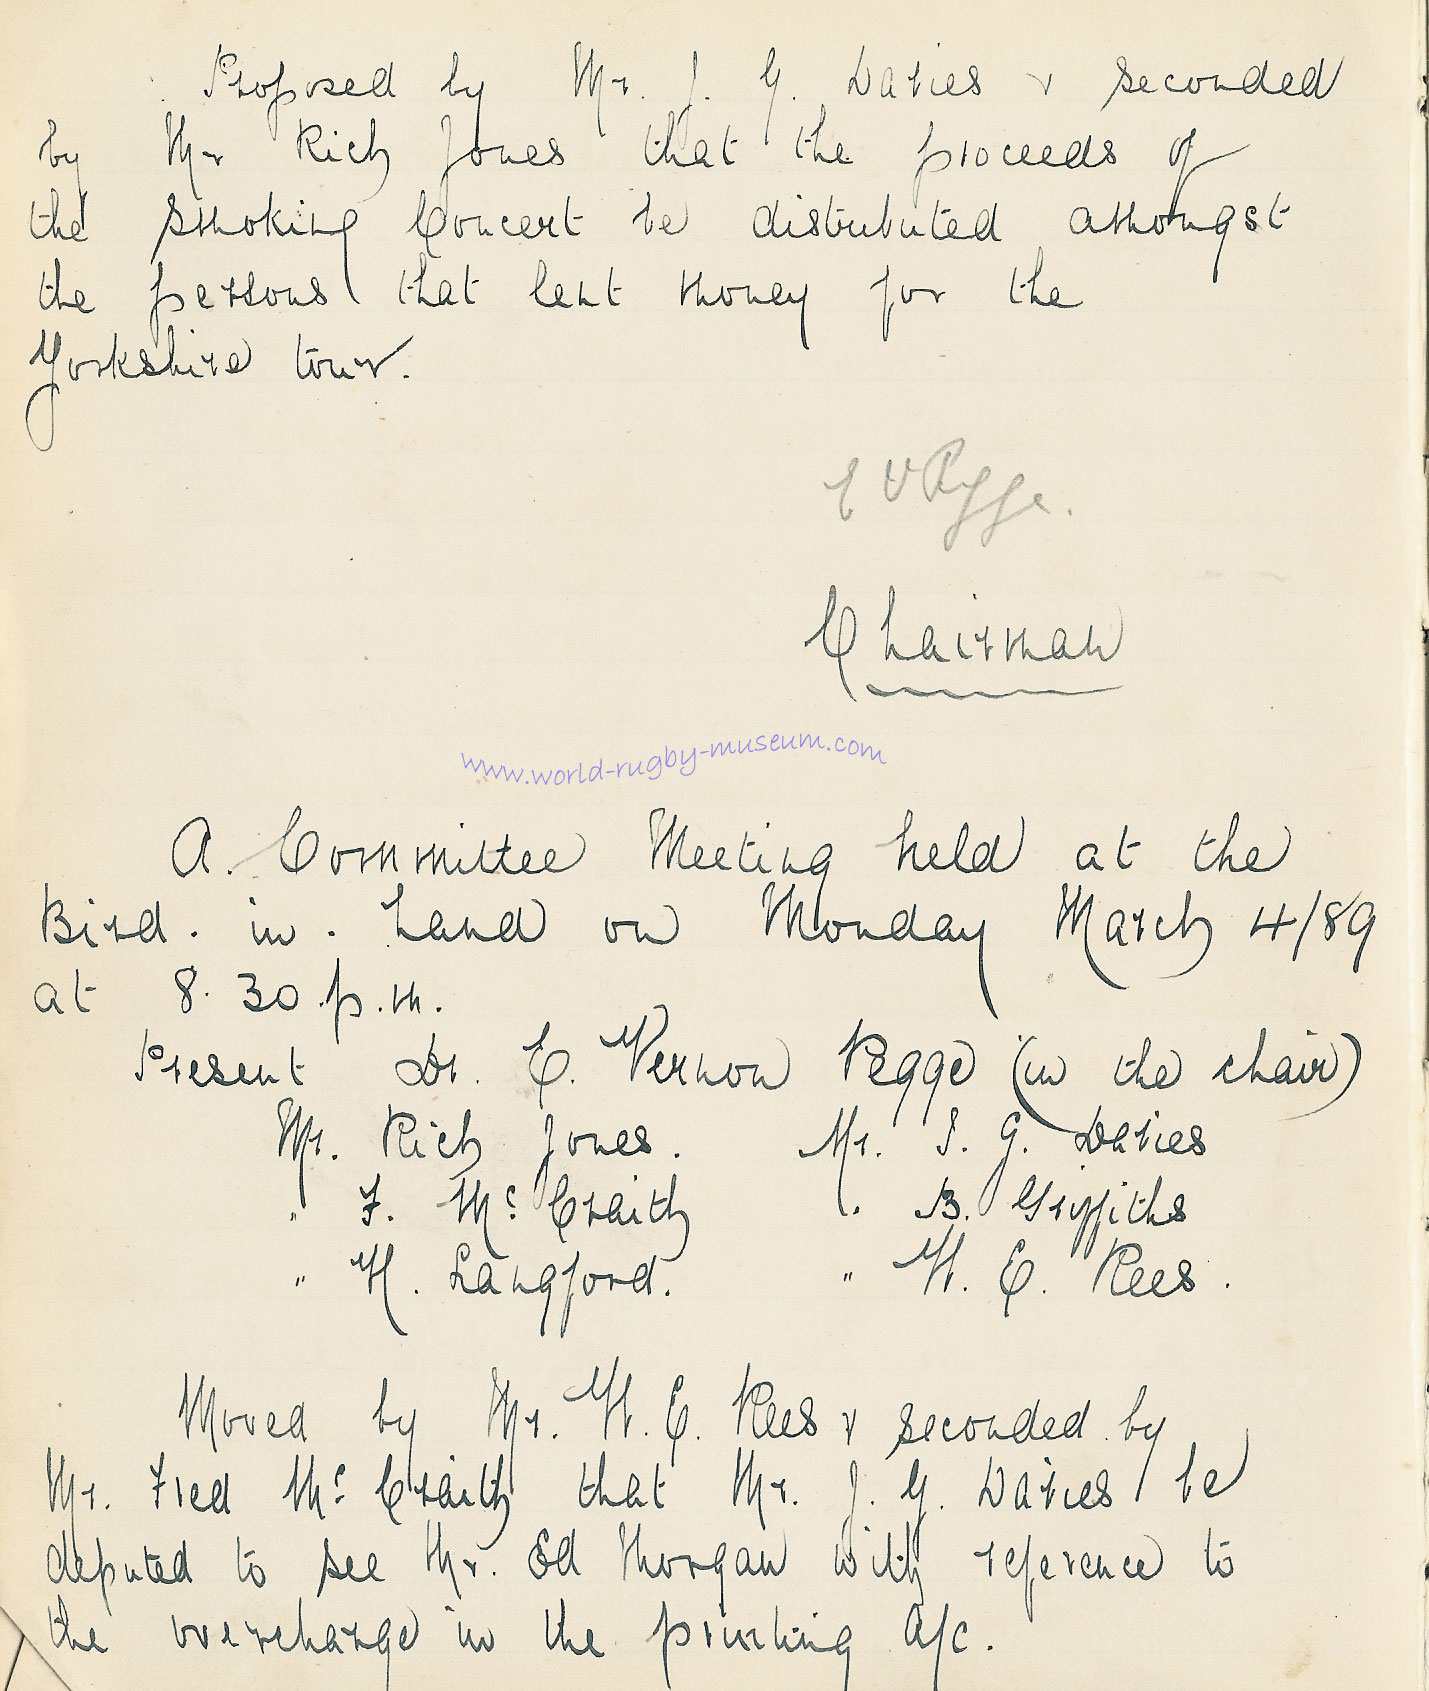 Proposed by Mr. J. G. Davies & seconded
by Mr Rich Jones that the proceeds of
the Smoking Concert be distributed amongst
the persons that lent money for the
Yorkshire tour.
E V Pegge.
Chairman
www.world-rugby-museum.com
A. Committee Meeting held at the
Bird. in. hand on Monday March 4/89
at 8.30.p.m.
Present Dr. E. Vernon Pegge (in the chair)
Mr. Rich Jones. Mr. J. G. Davies
" F. Mc Craith " B. Griffiths
" W. Langford. " W. E. Rees.
Moved by Mr. W. E. Rees & seconded by
Mr. Fred Mc Craith that Mr. J. G. Davies be
deputed to see Mr. Ed Morgan with reference to
the overcharge in the printing A/c.